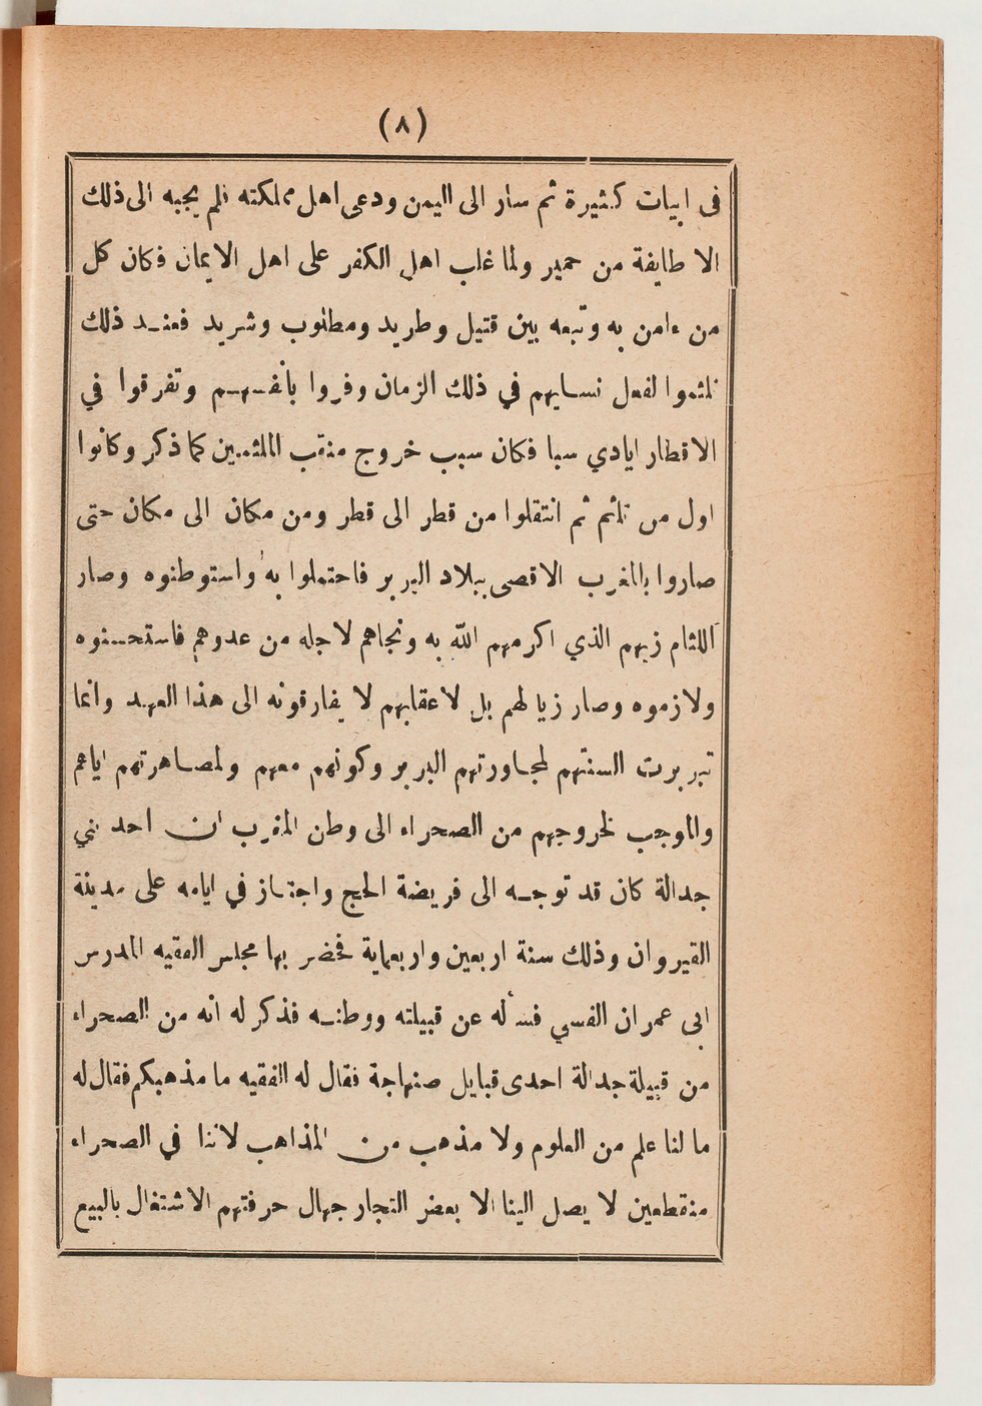 (٨)
فى ابيات كثيرة ثم سار الى اليمن ودعى اهل مملكته فلم يجبه الى ذلك
الا طايفة من حمير ولما غلب اهل الكفر على اهل الايمان فكان كل
من ءامن به وتبعه بين قتيل وطريد ومطلوب وشريد فعند ذلك
تلثموا لفعل نسايهم في ذلك الزمان وفروا بانفسهم وتفرقوا في
الاقطار ايادي سبا فكان سبب خروج منقب الملثمين كما ذكر وكانوا
اول من تلثم ثم انتقلوا من قطر الى قطر ومن مكان الى مكان حتى
صاروا بالمغرب الاقصى ببلاد البربر فاحتملوا به واستوطنوه وصار
اللثام زيهم الذي اكرمهم الله به ونجاهم لاجله من عدوهم فاستحسنوه
ولازموه وصار زيا لهم بل لاعقابهم لا يفارقونه الى هذا العهد وانما
تبربرت السنتهم لمجاورتهم البربر وكونهم معهم ولمصاهرتهم اياهم
والموجب لخروجهم من الصحراء الى وطن المغرب ان احد بني
جدالة كان قد توجه الى فريضة الحج واجتاز في ايامه على مدينة
القيروان وذلك سنة اربعين واربعماية فحضر بها مجلس الفقيه المدرس
ابى عمران الفسي فسأله عن قبيلته ووطنه فذكر له انه من الصحراء
من قبيلة جدالة احدى قبايل صنهاجة فقال له الفقيه ما مذهبكم فقال له
ما لنا علم من العلوم ولا مذهب من المذاهب لاننا في الصحراء
منقطعين لا يصل الينا الا بعض التجار جهال حرفتهم الاشتغال بالبيع